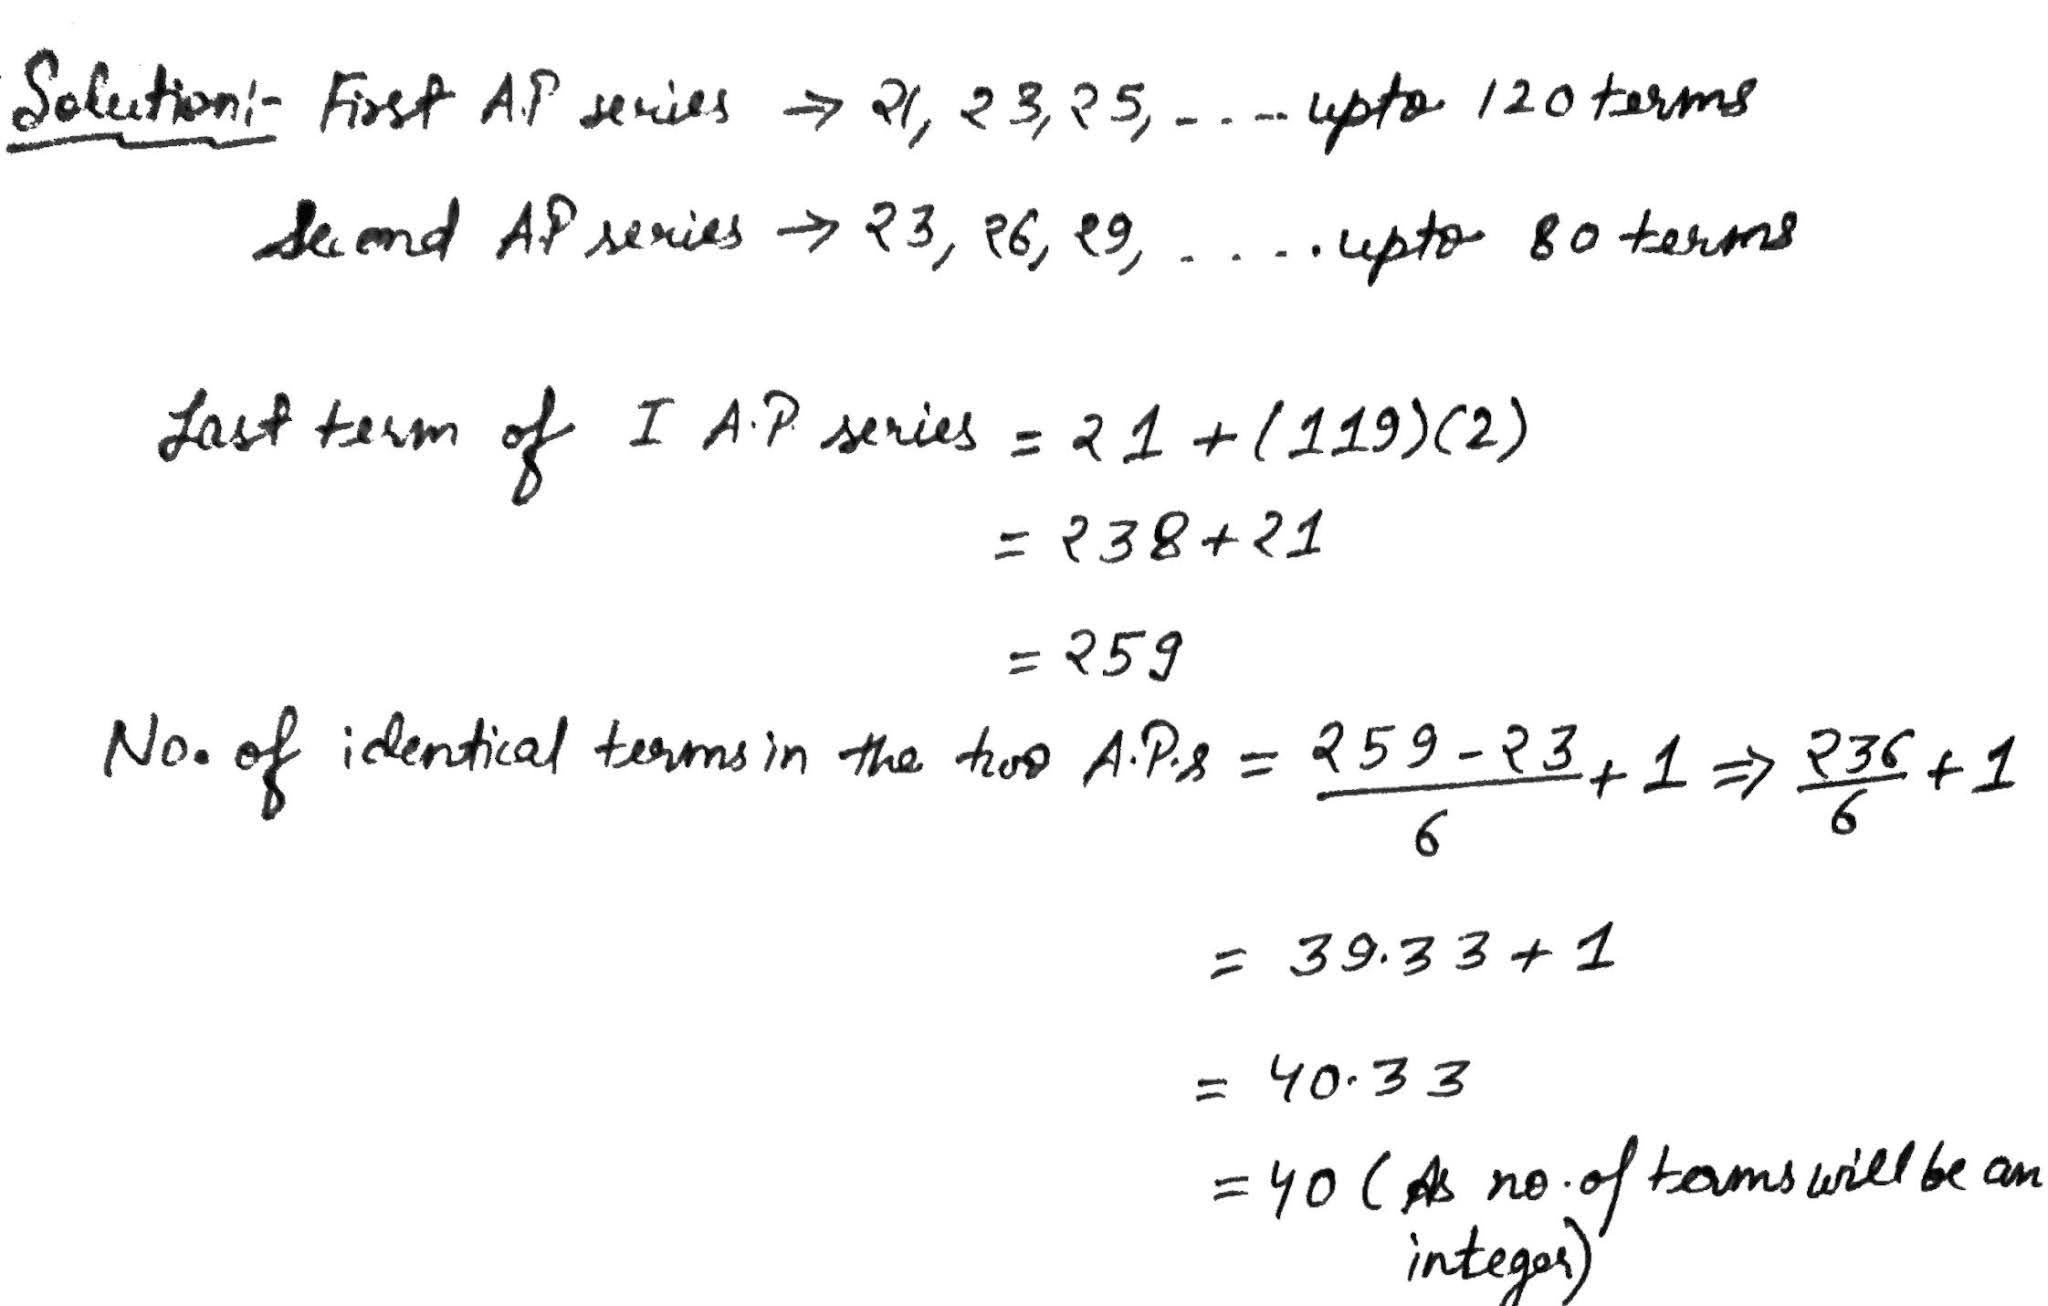 Solution:- First A.P series ⇒ 21, 23, 25, - - - - upto 120 terms
Second AP series → 23, 26, 29, . . . . . upto 80 terms
Last term of I A.P series = 21 + (119)(2)
= 238+21
= 259
No. of identical terms in the two A.P.s = \frac{259-23}{6} + 1 ⇒ \frac{236}{6} + 1
= 39.33 + 1
= 40.33
= 40 (As no. of terms will be an
integer)